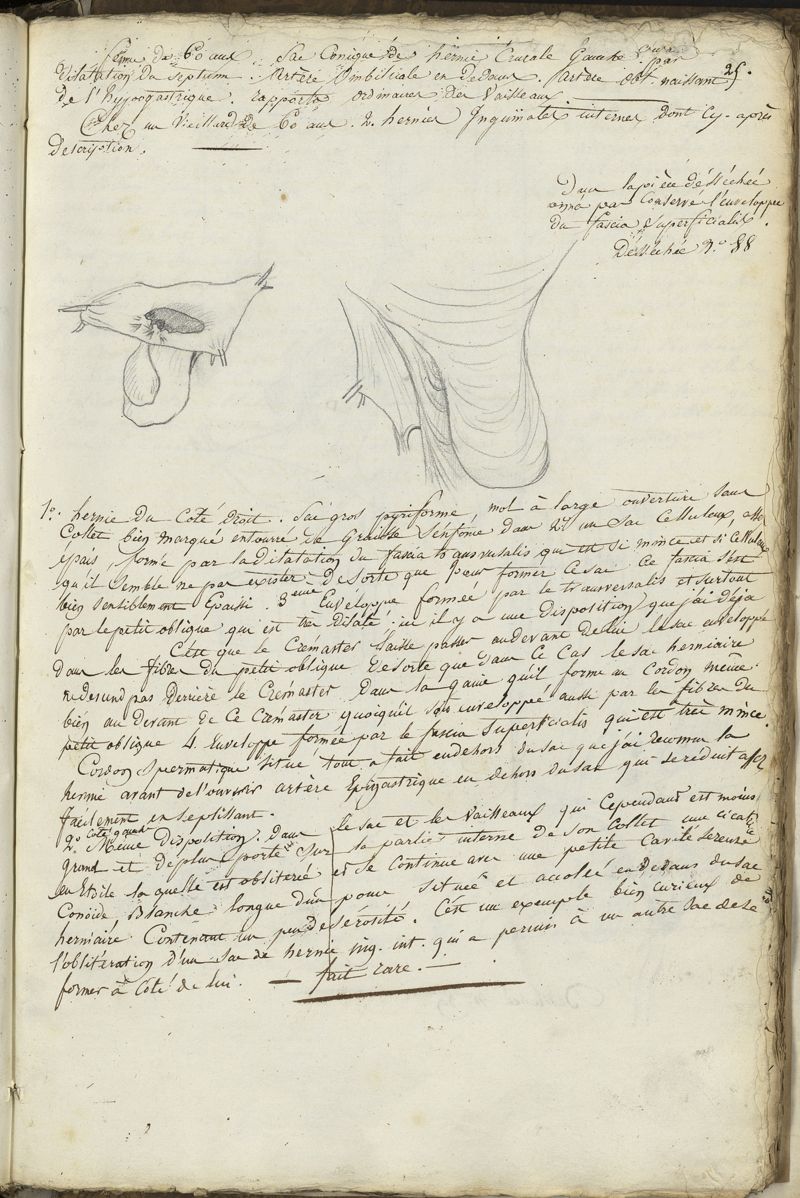 femme de 60 ans. Sac Conique de hernie Crurale Gauche
par
Dilatation du Septum. Artère Ombilicale en dedans. Artère obt. naissant 25.
de l'hypogastrique. rapports ordinaires des Vaisseaux
Chez un Vieillard de 60 ans. 2. hernies Inguinales internes dont Cy-après
description.
Dans la pièce désséchée
on n'a pas Conservé l'enveloppe
du fascia Superficialis.
Désséchée N.º 88
1º. hernie du Coté droit. Sac gros pyriforme, mol à large ouverture Sans
Collet bien marqué entouré de Graisse Renfermé dans un Sac Celluleux, assez
épais, formé par la Dilatation du fascia transversalis qui est si mince et si Celluleux
qu'il Semble ne pas exister de Sorte que pour former ce Sac Ce fascia s'est
bien Sensiblement Epaissi. 3eme Enveloppe formée par le transversalis et surtout
par le petit oblique qui est très dilaté. ici il y a une disposition que j'ai déjà
C'est que le Crémaster laisse passer au devant de lui le sac enveloppé
dans les fibres du petit oblique de sorte que dans ce Cas le sac herniaire
ne descend pas derrière le Crémaster dans la gaine qu'il forme au Cordon même
bien au devant de ce Crémaster quoiqu'il soit enveloppé aussi par les fibres du
petit oblique 4. Enveloppe formée par le fascia Superficialis qui est très mince.
Cordon Spermatique Situé tout à fait en dehors du sac que j'ai reconnu la
hernie avant de l'ouvrir artère Epigastrique en dehors du sac qui se réduit assez
facilement en Seplissant.
2º Coté gauche
Même Disposition. Dans le sac et les Vaisseaux qui Cependant est moins
grand et de plus porte sur la partie interne de son Collet une cicatrice
en Etoile laquelle est oblitérée et se Continue avec une petite Cavité Sereuse
Conoïde Blanche longue d'un pouce située et accolée en dedans du sac
herniaire Contenant un peu de sérosité. C'est un exemple bien curieux de
l'oblitération d'un sac de hernie ing. int. qui a permis à un autre sac de se
former à Coté de lui. — fait rare. —